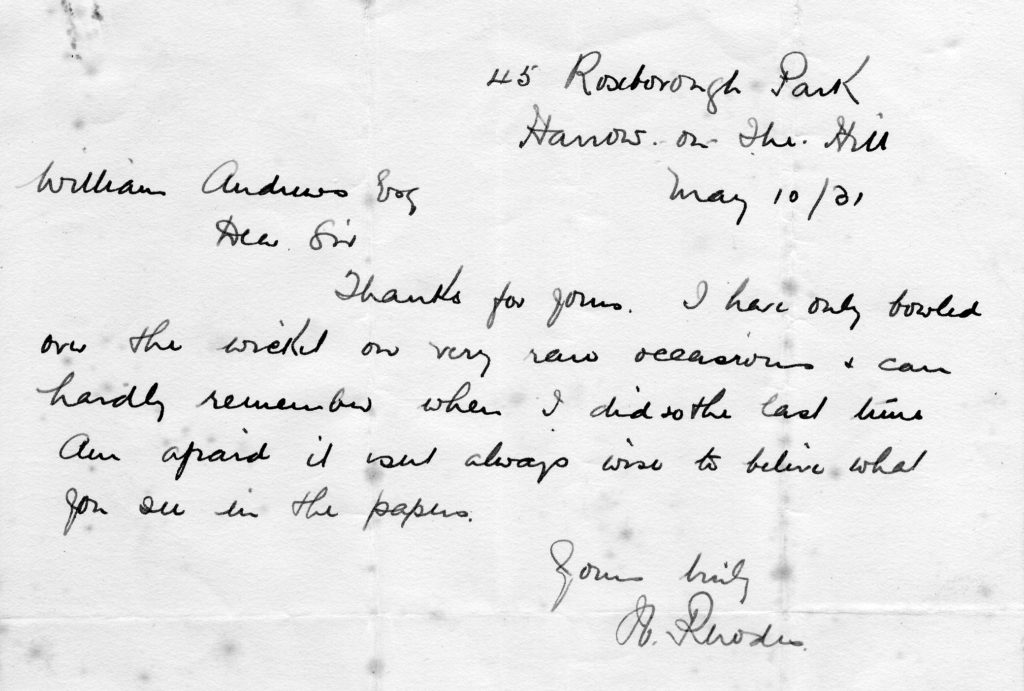 45 Roxborough Park
Harrow. on The. Hill
May 10/31
William Andrews Esq
Dear Sir
Thanks for yours. I have only bowled
over the wicket on very rare occassions & can
hardly remember when I did so the last time
Am afraid it isnt always wise to belive what
you see in the papers.
Yours truly
W. Rhodes.